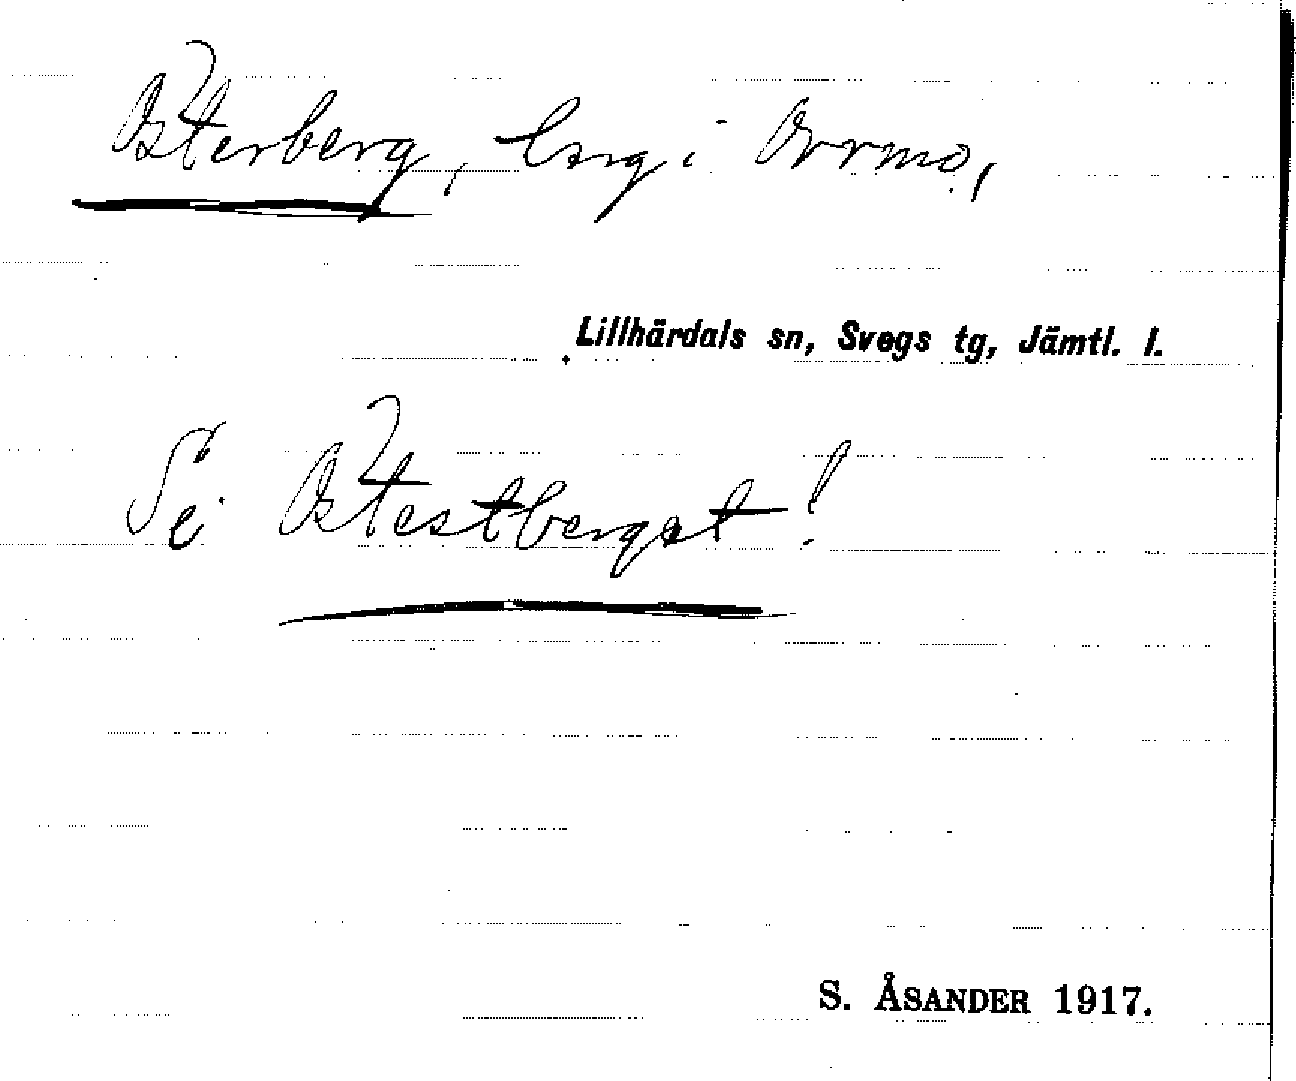 Österberg, lng i Orrmo,
Lillhärdals sn, Svegs tg, Jämtl. l.
Se Östestberget!
S. ÅSANDER 1917.